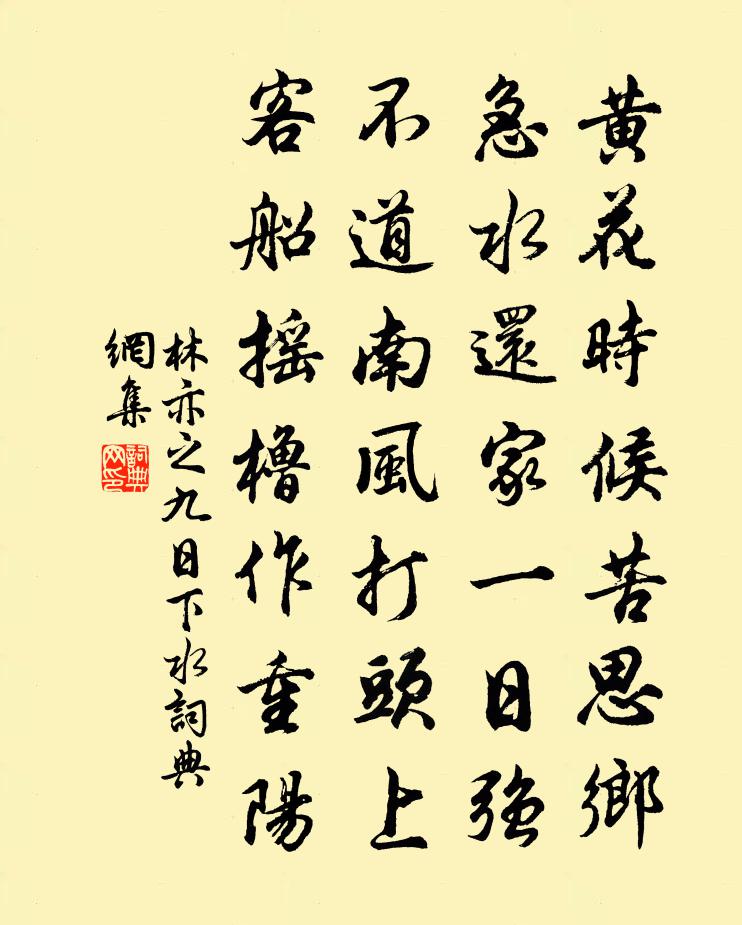 黃花時候苦思鄉
急水還家一日強
不道南風打頭上
客船搖櫓作重陽
林亦之九日下水詞典
網集
詞典網印